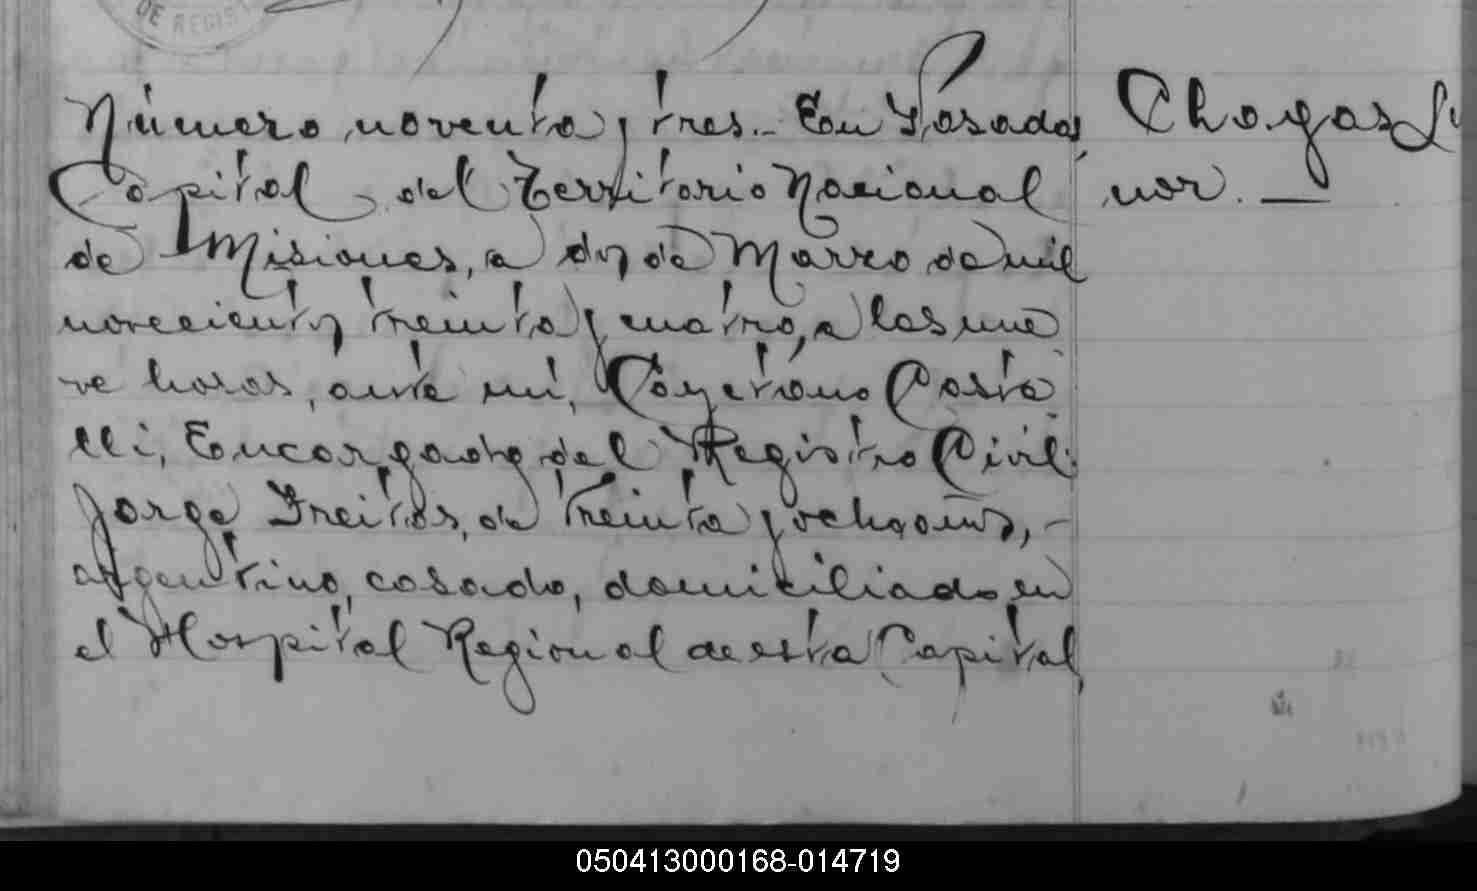 DE REGIS
Número noventa y tres.- En Posadas,
Capital del Territorio Nacional
de Misiones, a dos de Marzo de mil
novecientos treinta y cuatro, a las nue
ve horas, ante mí, Cayetano Caste
lli, Encargado del Registro Civil:
Jorge Freitas, de treinta y ocho años, -
argentino, casado, domiciliado en
el Hospital Regional de esta Capital,
Chagas Lu
nor. —
050413000168-014719